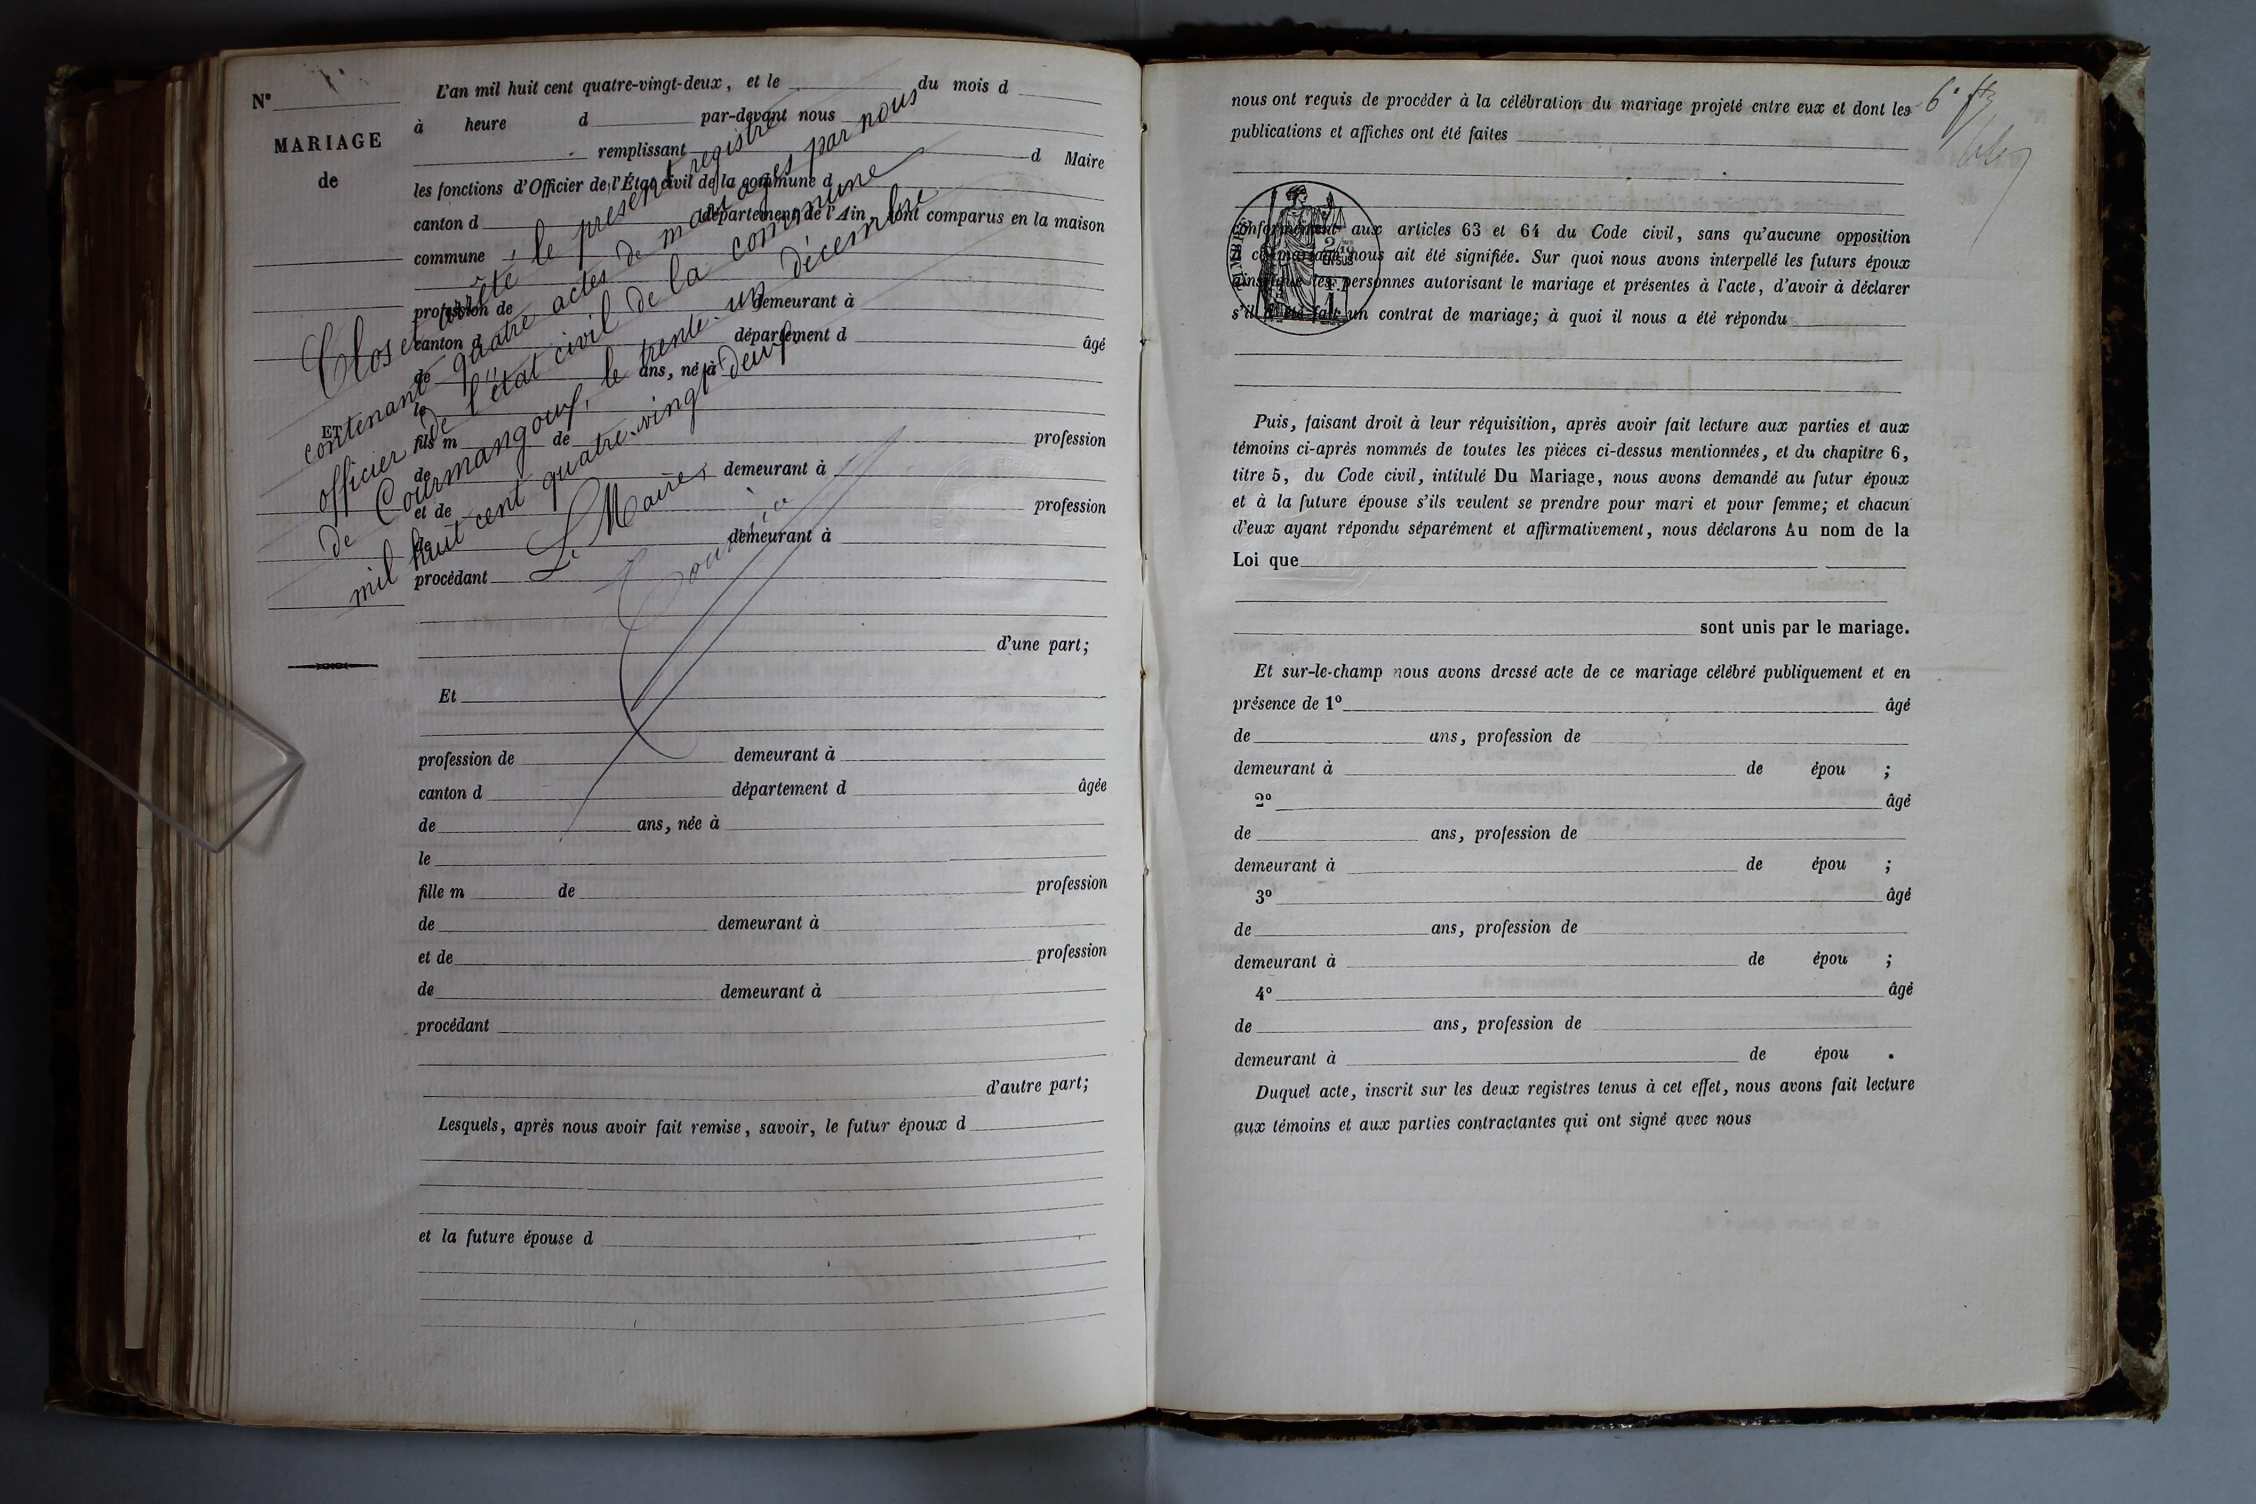 N°
MARIAGE
de
ET
L'an mil huit cent quatre-vingt-deux, et le du mois d
à heure d par-devant nous
remplissant d Maire
les fonctions d'Officier de l'État civil de la commune d
canton d département de l'Ain, sont comparus en la maison
commune
profession de demeurant à
canton d département d âgé
de ans, né à
le
fils m de profession
de demeurant à
et de profession
de demeurant à
procédant
d'une part;
Clos et arrêté le présent registre
contenant quatre actes de mariages par nous
officier de l'état civil de la commune
de Courmangoux, le trente-un décembre
mil huit cent quatre-vingt deux
Le Maire,
Et
profession de demeurant à
canton d département d âgée
de ans, née à
le
fille m de profession
de demeurant à
et de profession
de demeurant à
procédant
d'autre part;
Lesquels, après nous avoir fait remise, savoir, le futur époux d
et la future épouse d
6e
nous ont requis de procéder à la célébration du mariage projeté entre eux et dont les
publications et affiches ont été faites
TIMBRE
conformément aux articles 63 et 64 du Code civil, sans qu'aucune opposition
à ce mariage nous ait été signifiée. Sur quoi nous avons interpellé les futurs époux
ainsi que les personnes autorisant le mariage et présentes à l'acte, d'avoir à déclarer
s'il a été fait un contrat de mariage; à quoi il nous a été répondu
Puis, faisant droit à leur réquisition, après avoir fait lecture aux parties et aux
témoins ci-après nommés de toutes les pièces ci-dessus mentionnées, et du chapitre 6,
titre 5, du Code civil, intitulé Du Mariage, nous avons demandé au futur époux
et à la future épouse s'ils veulent se prendre pour mari et pour femme; et chacun
d'eux ayant répondu séparément et affirmativement, nous déclarons Au nom de la
Loi que
sont unis par le mariage.
Et sur-le-champ nous avons dressé acte de ce mariage célébré publiquement et en
présence de 1° âgé
de ans, profession de
demeurant à de épou ;
2° âgé
de ans, profession de
demeurant à de épou ;
3° âgé
de ans, profession de
demeurant à de épou ;
4° âgé
de ans, profession de
demeurant à de épou .
Duquel acte, inscrit sur les deux registres tenus à cet effet, nous avons fait lecture
aux témoins et aux parties contractantes qui ont signé avec nous